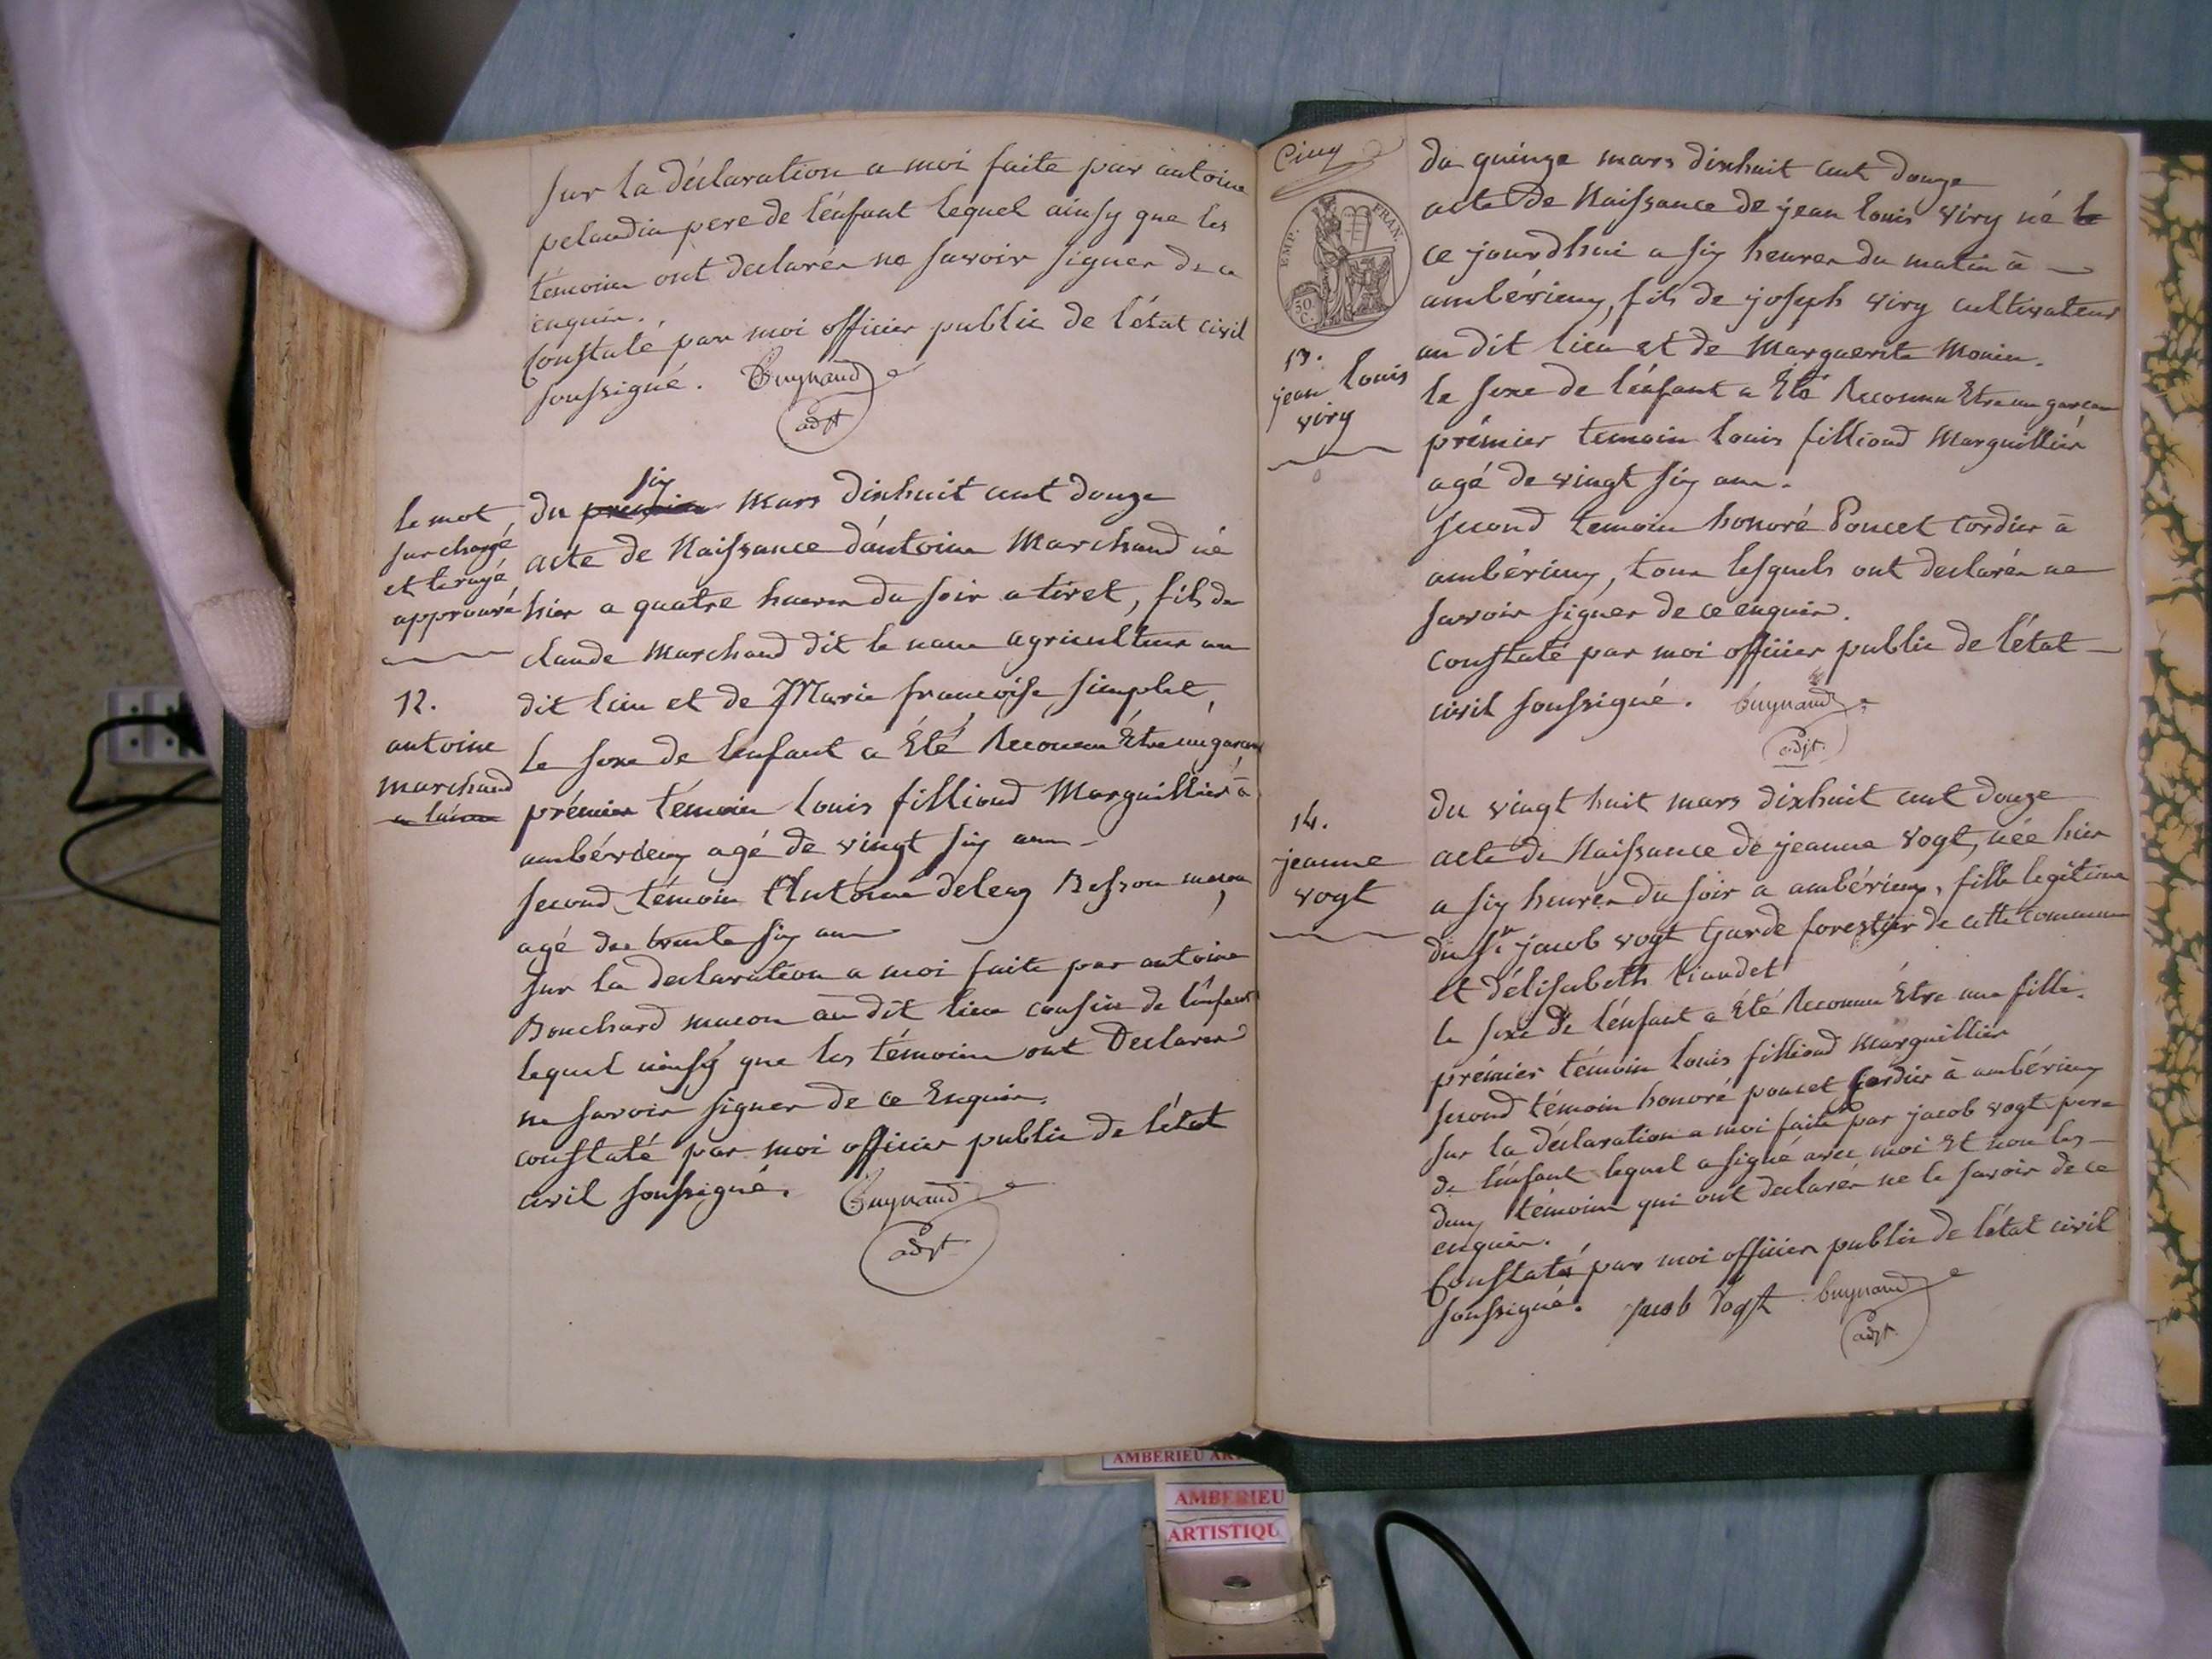 Sur la déclaration a moi faite par antoine
pelaudin pere de l'énfant lequel ainsy que les
témoins ont declarés ne savoir signer de ce
enquis.
Constaté par moi officier public de l'état civil
soussigné. Guynaud
adjt
le mot
surchargé
et le rayé
approuvé
12.
antoine
marchand
six
du premier mars dixhuit cent douze
acte de Naissance d'antoine Marchand né
hier a quatre heures du soir a tiret, fils de
claude Marchand dit le agriculteur au
dit lieu et de Marie francoise simplet,
le sexe de lenfant a Été Reconnu Étre un garçon
prémier témoin louis fillioud Marguillier à
ambérieux agé de vingt six ans
second témoin Antoine Besson macon,
agé de trente six ans
sur la declaration a moi faite par antoine
Bouchard macon au dit lieu cousin de l'énfant
lequel ainsÿ que les témoins ont Declarer
ne savoir signer de ce Enquis.
constaté par moi officier public de l'état
civil soussigné. Guynaud
adjt
Cinq
EMP. FRAN.
50 C.
13.
jean louis
viry
du quinze mars dixhuit cent douze
acte De Naissance de jean louis viry né le
ce jourdhui a six heures du matin à
ambérieux, fils de joseph viry cultivateur
au dit lieu et de Marguerite Monin.
le sexe de l'énfant a Été Reconnu Etre un garcon
prémier temoin louis fillioud Marguillier
agé de vingt six ans.
second temoin honoré Poncet cordier à
ambérieux, tous lesquels ont declarés ne
savoir signer de ce enquis.
constaté par moi officier public de l'état
civil soussigné. Guynaud
adjt.
14.
jeanne
vogt
du vingt huit mars dixhuit cent douze
acte de Naissance de jeanne vogt, née hier
a six heures du soir a ambérieux, fille legitime
du Sr jacob vogt Garde forestier de cette commune
et d'élisabeth
le sexe de l'énfant a Été Reconnu Étre une fille.
prémier témoin louis fillioud Marguillier
second témoin honoré poncet Cordier à ambérieux
sur la déclaration a moi faite par jacob vogt pere
de l'énfant lequel a signé avec moi Et non les
deux témoins qui ont declarés ne le savoir de ce
enquis.
Constaté par moi officier public de l'état civil
soussigné. Jacob Vogt Guynaud
adjt.
AMBERIEU
AMBERIEU
ARTISTIQU